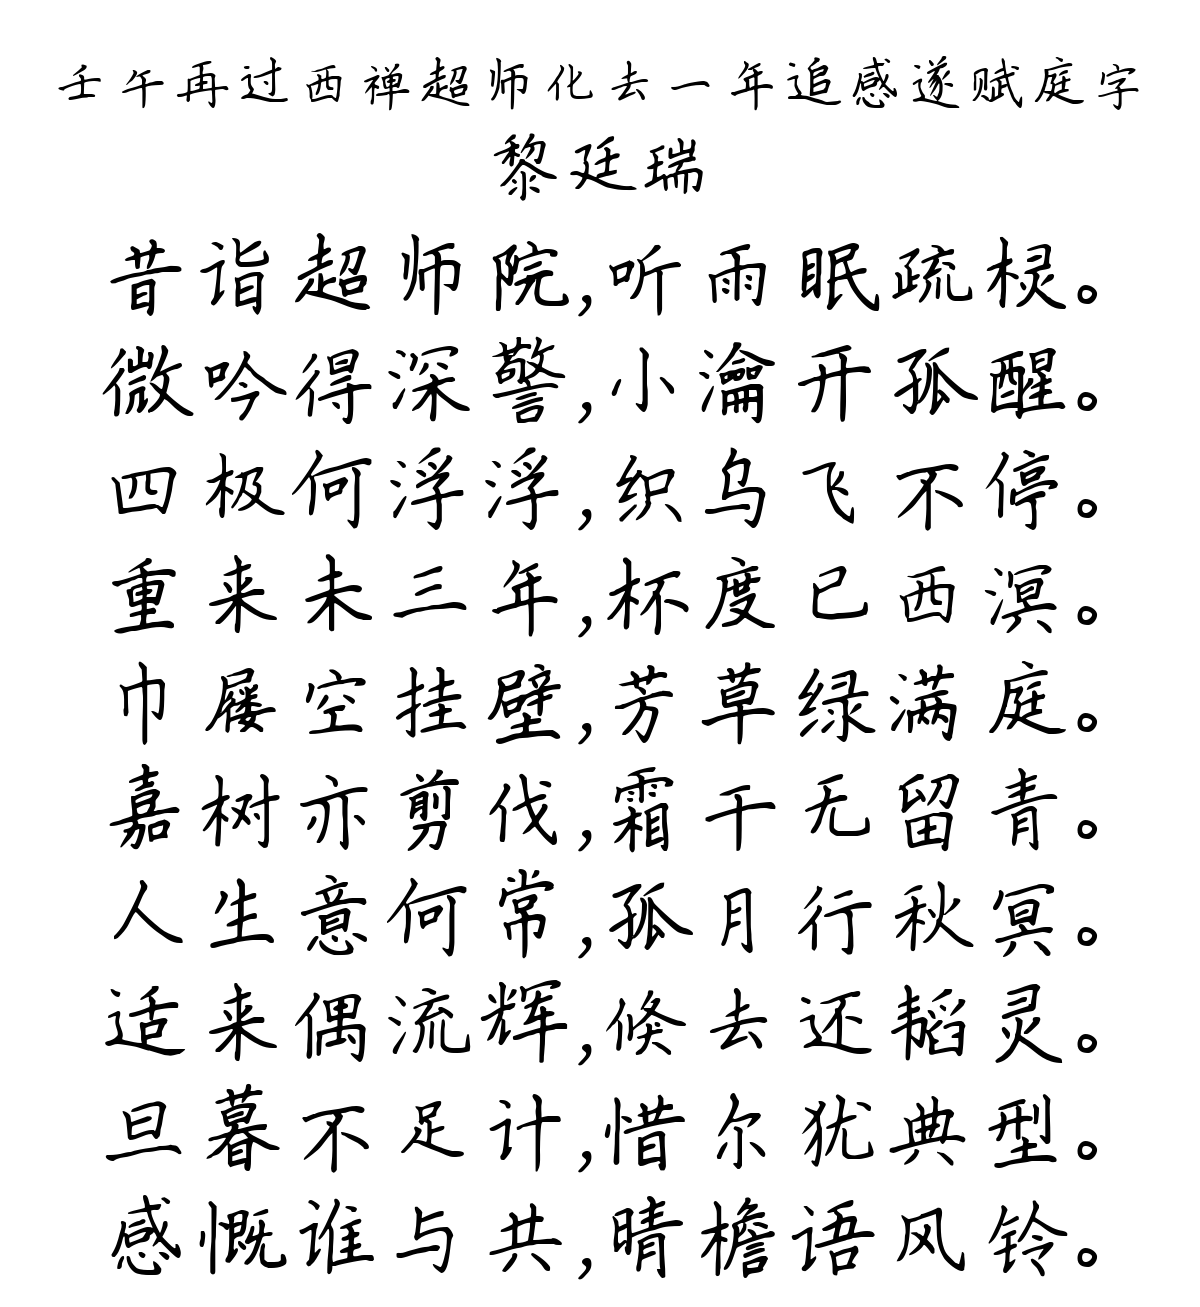 壬午再过西禅超师化去一年追感遂赋庭字
黎廷瑞
昔诣超师院,听雨眠疏棂。
微吟得深警,小瀹开孤醒。
四极何浮浮,织乌飞不停。
重来未三年,杯度已西溟。
巾屦空挂壁,芳草绿满庭。
嘉树亦剪伐,霜干无留青。
人生意何常,孤月行秋冥。
适来偶流辉,倏去还韬灵。
旦暮不足计,惜尔犹典型。
感慨谁与共,晴檐语风铃。